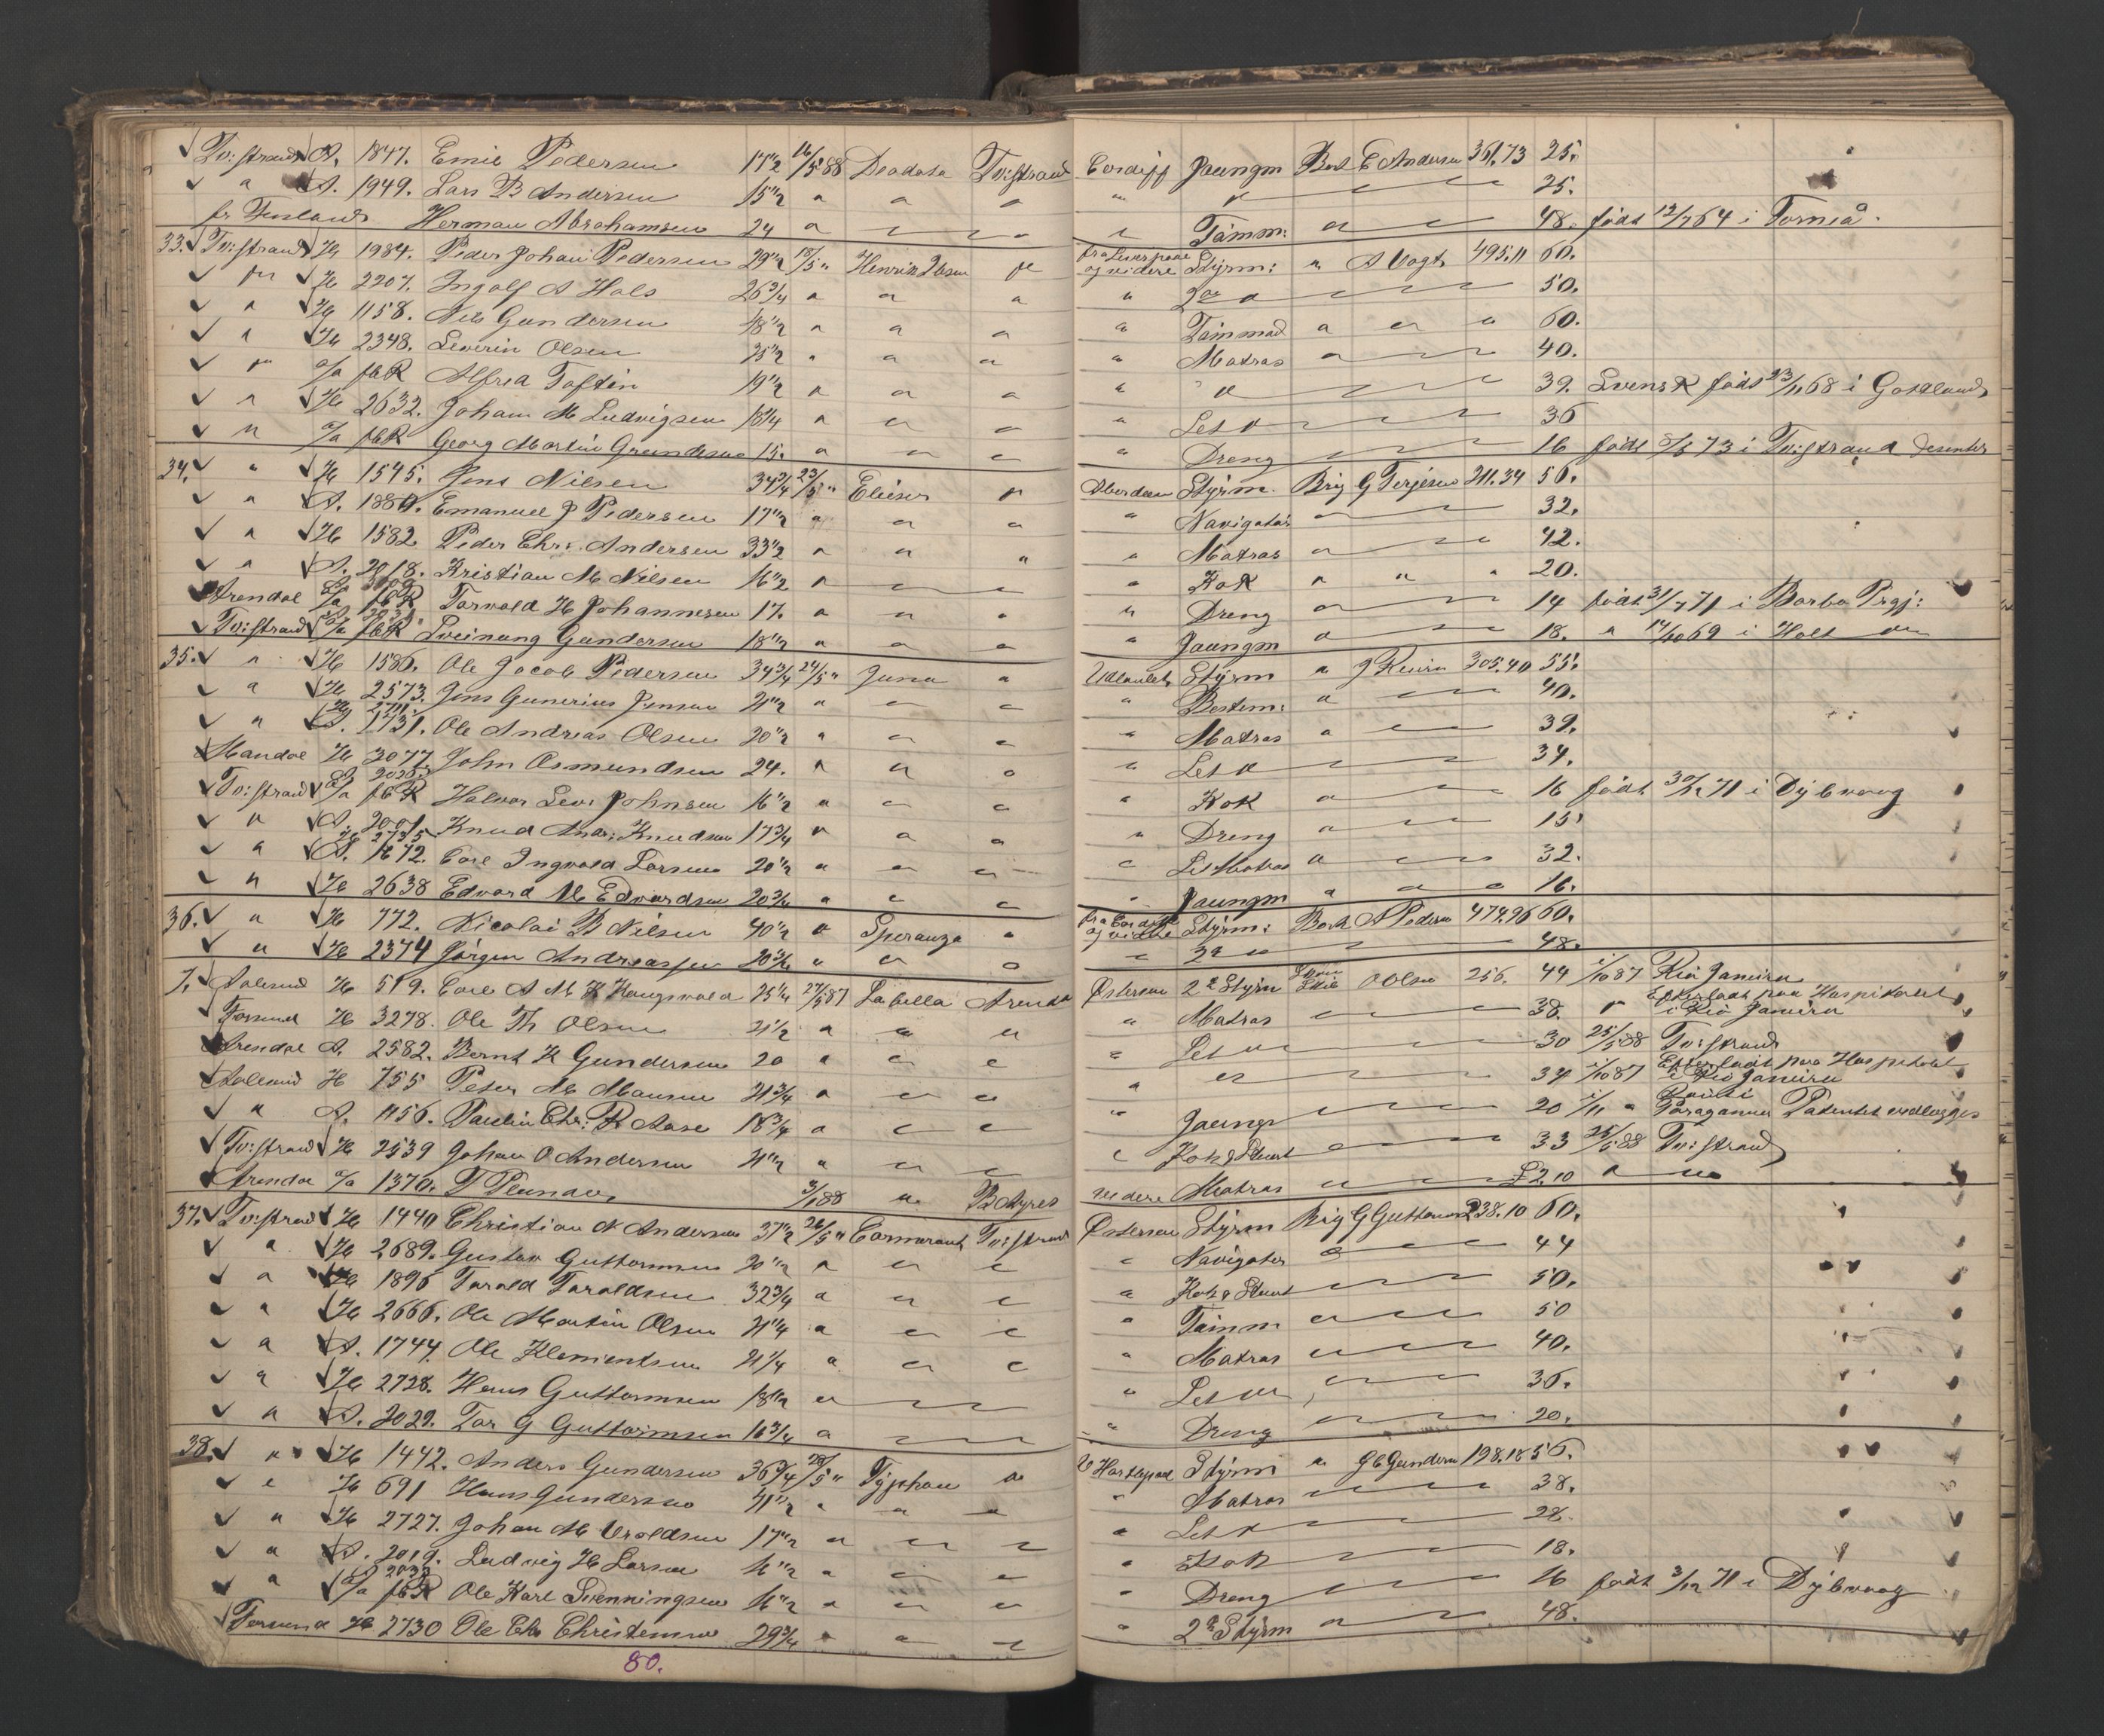 Tv:strand A. 1847. Emil Pedersen 17 1/2 16/5 88 Deodata Tv:strand Cardiff Jaungm Bark E Andersen 361.73 25.
" A. 1949. Lars B Andersen 15 1/2 " " " " " 25.
fr Finland Herman Abrahamsen 24 " " " " Tømm: " 48. født 12/7 64 i Torneå.
33. Tv:strand H 1984. Peder Johan Pedersen 29 1/2 18/5 " Henrik Ibsen " fra Liverpool og videre Styrm: " A Vogt 495.11 60.
" H 2207. Ingolf A Hals 26 3/4 " " " " 2den " 50.
" H 1158. Nils Gundersen 48 1/2 " " " " Tømmad " " " 60.
" H 2348. Severin Olsen 25 1/2 " " " " Matros " 40.
" fbR Alfred Toftén 19 1/2 " " " " " 39. Svensk født 23/11 68 i Gotland
" H 2632. Johan M Ludvigsen 18 1/4 " " " " Let " 36
" fbR Georg Martin Grundesen 15. " " " " Dreng 16 født 73 i Tv:strand Desenter
34. " H 1545. Jens Nilsen 34 3/4 23/5 " Elieser " Aberdeen Styrm. Brig G Terjesen 211.34 56.
" A. 1880. Emanuel J Pedersen 17 1/2 " " " " Navigatør " 32.
" H 1582 Peder Chr. Andersen 33 1/2 " " " " Matros " 42.
" A. 2018. Kristian M Nilsen 16 1/2 " " " " Kok " " " 20.
Arendal fbR Torvald H Johannesen 17. " " " " Dreng " 14 født 31/7 71 i Barbo Prgj:
Tv:strand A 2031 fbR Sveinung Gundersen 18 1/2 " " " " Jaungm " 18. " 17/10 69 i Holt "
35. " H 1586. Ole Jacob Pedersen 34 3/4 24/5 " Juno " Udlandet Styrm " 305.40 55.
" H 2573. Jens Gunerius Jensen 21 1/2 " " " " Bestem: " 40.
" A. 1731. Ole Andreas Olsen 20 1/2 " " " " Matros " 39.
Mandal H 3077. John Osmundsen 24. " " " " Let " 34.
Tv:strand fbR Halvor Sev: Johnsen 16 1/2 " " " " Kok " 16 født 30/12 71 i Dybvaag
" A. 2001. Knud And: Knudsen 17 3/4 " " " " Dreng " 15.
" A. 1672. Carl Ingvald Larsen 20 1/2 " " " " Let Matros " 32.
" H 2638 Edvard M Edvardsen 20 3/4 " " " " Jaungm " " " 16.
36. " H 772. Nicolai B Nilsen 40 1/2 " Speranza " fra Cardiff og videre Styrm: Bark A Pedersen 474.96 60.
" H 2374 Jørgen Andreassen 20 3/4 " " " " 2d " 48.
7. Aalesund H 519. Carl A M K Haugsvald 25 1/4 27/5 87 Isabella Arendal Østersøen 2d Styrm O Olsen 256. 44 1/10 87 Rio Janeiro
Farsund H 3278. Ole Th Olsen 21 1/2 " " " " Matros 38. " Efterladt paa Hospitalet i Rio Janeiro
Arendal A. 2582. Bernt K Gundersen 20 " " " " Let " 30 25/5 88 Tv:strand
Aalesund H 755 Peter M Mansen 21 3/4 " " " " " 34 1/10 87 Efterladt paa Hospitalet i Rio Janeiro
" A. 1156. Paulin Chr: R Aase 18 3/4 " " " " Jaungm 20 1/11 " Paraganua Patentet vedlægges
Tv:strand H 2539 Johan O Andersen 21 1/2 " " " " Kok & Stuert 33 25/5 88 Tv:strand
Arendal 1370. 3/1 88 " B Ayres videre Matros " £2.10 " "
37. Tv:strand H 1440 Christian N Andersen 37 1/2 26/5 " Cormorant Tv:strand Østersøen Styrm Brig G Guttormsen 238.10 60.
" H 2689. Gustav Guttormsen 20 1/2 " " " " Navigatør 44
" H 1896 Tarald Taraldsen 32 3/4 " " " " Kok & Stuert 50.
" H 2666. Ole Martin Olsen 21 1/4 " " " " Tømm 50
" A. 1744. Ole Klementsen 21 1/4 " " " " Matros 40.
" H 2728. Hans Guttormsen 18 1/2 " " " " Let " 36.
" A. 2029. Tor G Guttormsen 16 3/4 " " " " Dreng 20.
38. " H 1442. Anders Gundersen 36 3/4 28/5 " Typhon " V Hartlepool Styrm " G Gundersen 198.18 56.
" H 691 Hans Gundersen 41 1/2 " " " " Matros 38.
" H 2727. Johan M Uroldsen 17 1/2 " " " " Let " 28.
" A. 2019. Ludvig H Larsen 16 1/2 " " " " Kok 18.
" 2032 fbR Ole Karl Svenningsen 16 1/2 " " " " Dreng 16 født 3/12 71 i Dybvaag
Farsund H 2730 Ole Chr Christensen 29 3/4 " " " " 2d Styrm " 48.
80.